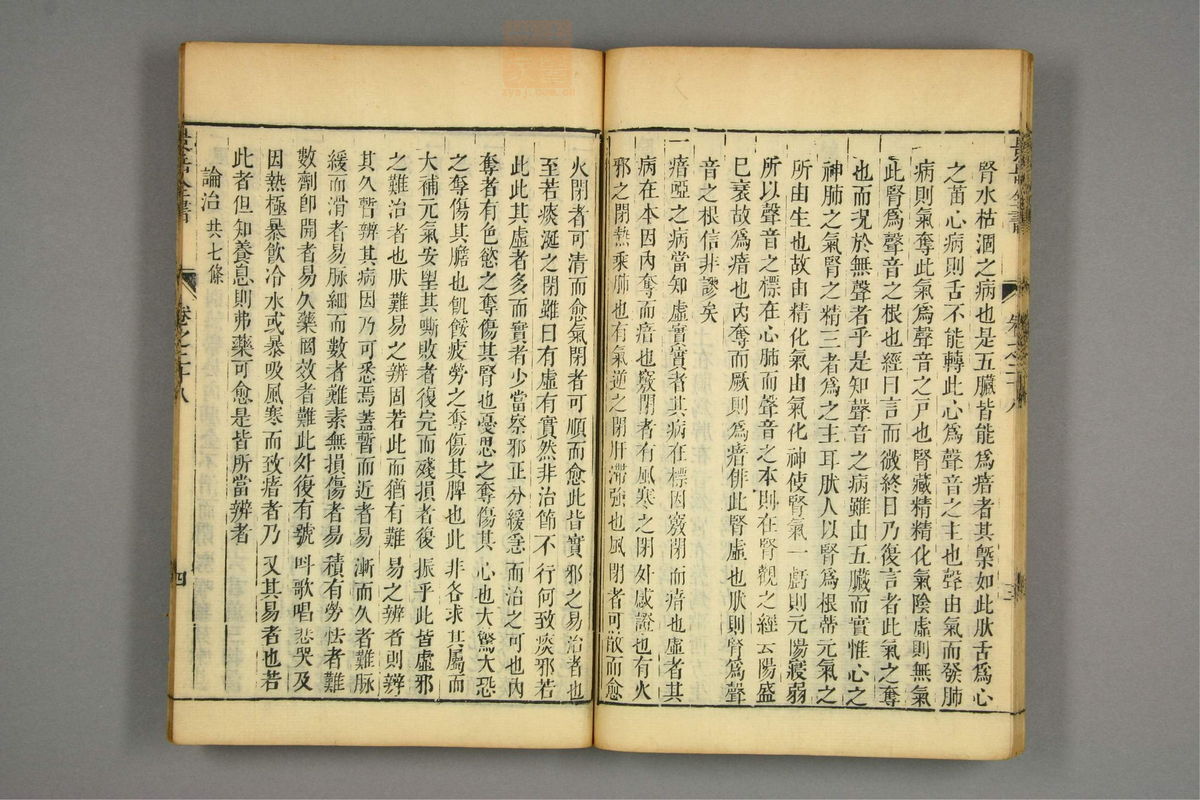 腎水枯涸之病也是五臟皆能爲瘖者其槩如此肰舌爲心
之苖心病則舌不能轉此心爲聲音之主也聲由氣而發肺
病則氣奪此氣爲聲音之戸也腎藏精精化氣陰虛則無氣
此腎爲聲音之根也經曰言而微終日乃復言者此氣之奪
也而况於無聲者乎是知聲音之病雖由五臟而實惟心之
神肺之氣腎之精三者爲之主耳肰人以腎爲根蔕元氣之
所由生也故由精化氣由氣化神使腎氣一虧則元陽寖弱
所以聲音之標在心肺而聲音之本則在腎觀之經云陽盛
已衰故爲瘖也內奪而厥則爲瘖俳此腎虛也肰則腎爲聲
音之根信非謬矣
一瘖啞之病當知虛實實者其病在標因竅閉而瘖也虛者其
病在本因內奪而瘖也竅閉者有風寒之閉外感證也有火
邪之閉熱乘肺也有氣逆之閉肝滯強也風閉者可散而愈
火閉者可清而愈氣閉者可順而愈此皆實邪之易治者也
至若痰涎之閉雖曰有虛有實然非治節不行何致痰邪若
此此其虛者多而實者少當察邪正分緩急而治之可也內
奪者有色慾之奪傷其腎也憂思之奪傷其心也大驚大恐
之奪傷其膽也飢餒疲勞之奪傷其脾也此非各求其屬而
大補元氣安望其嘶敗者復完而殘損者復振乎此皆虛邪
之難治者也肰難易之辨固若此而猶有難易之辨者則辨
其久暫辨其病因乃可悉焉蓋暫而近者易漸而久者難脉
緩而滑者易脉細而數者難素無損傷者易積有勞怯者難
數劑卽開者易久藥罔效者難此外復有號呌歌唱悲哭及
因熱極暴飮冷水或暴吸風寒而致瘖者乃又其易者也若
此者但知養息則弗藥可愈是皆所當辨者
論治 共七條
四